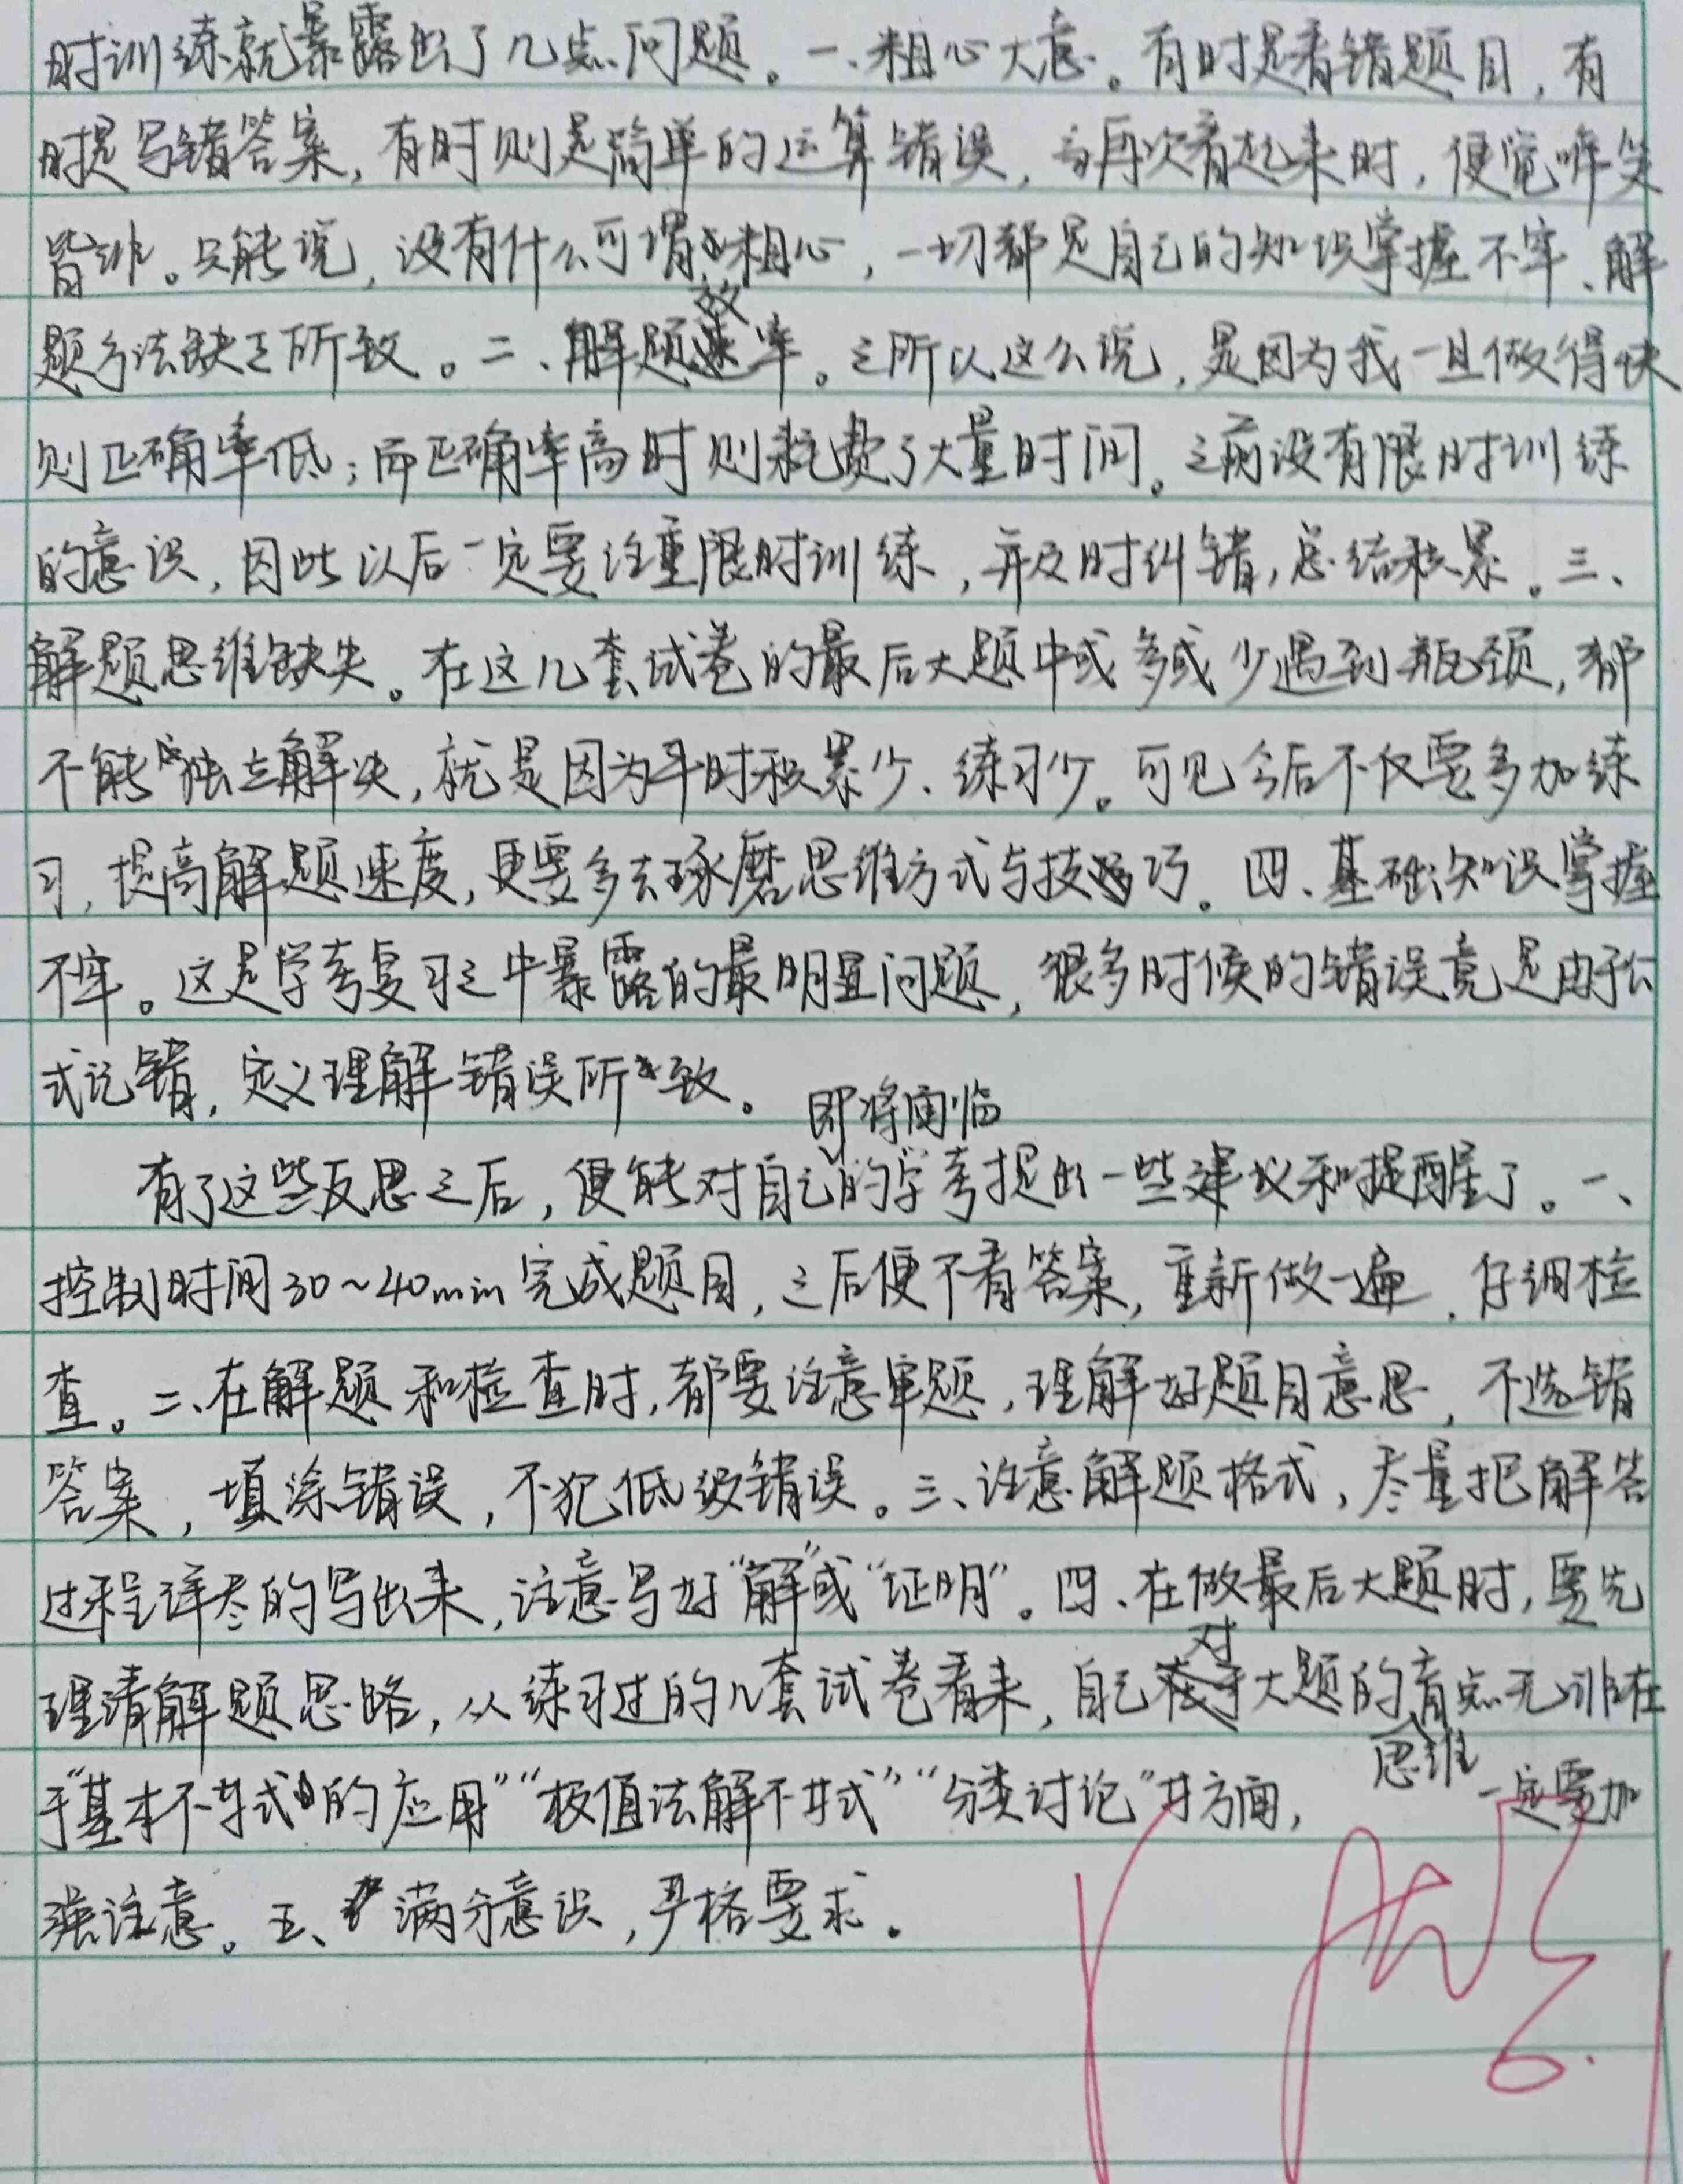 时训练就暴露出了几点问题。一、粗心大意。有时是看错题目，有
时是写错答案，有时则是简单的运算错误，再次看起来时，便觉啼笑
皆非。只能说，没有什么可谓粗心，一切都是自己的知识掌握不牢、解
题方法缺乏所致。二、解题效率。之所以这么说，是因为我一旦做得快
则正确率低；而正确率高时则耗费了大量时间。之前没有限时训练
的意识，因此以后一定要注重限时训练，并及时纠错，总结积累。三、
解题思维缺失。在这几套试卷的最后大题中或多或少遇到瓶颈，都
不能独立解决，就是因为平时积累少、练习少。可见今后不仅要多加练
习，提高解题速度，更要多去琢磨思维方式与技巧。四、基础知识掌握
不牢。这是学考复习之中暴露的最明显问题，很多时候的错误竟是由于公
式记错，定义理解错误所致。
即将面临
有了这些反思之后，便能对自己的学考提出一些建议和提醒了。一、
控制时间30~40min完成题目，之后便不看答案，重新做一遍，仔细检
查。二、在解题和检查时，都要注意审题，理解好题目意思，不选错
答案，填涂错误，不犯低级错误。三、注意解题格式，尽量把解答
过程详尽的写出来，注意写好“解”或“证明”。四、在做最后大题时，要先
理清解题思路，从练习过的几套试卷看来，自己对大题的盲点无非在
思维
于“基本不等式的应用”“极值法解不等式”“分类讨论”等方面，一定要加
强注意。五、满分意识，严格要求。